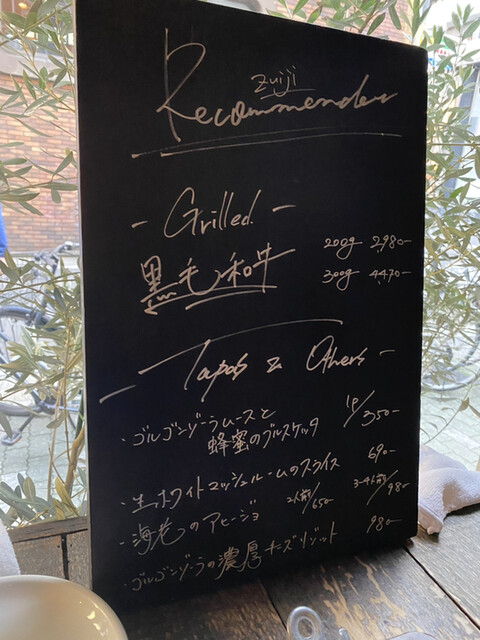 Zuiji
Recommender
- Grilled -
黒毛和牛 200g 2,980-
300g 4,470-
- Tapas & Others -
・ゴルゴンゾーラムースと
蜂蜜のブルスケッタ 1P/350-
・生ホワイトマッシュルームのスライス 690-
・海老のアヒージョ 2人前/650- 3~4人前/980-
・ゴルゴンゾーラの濃厚チーズリゾット 980-